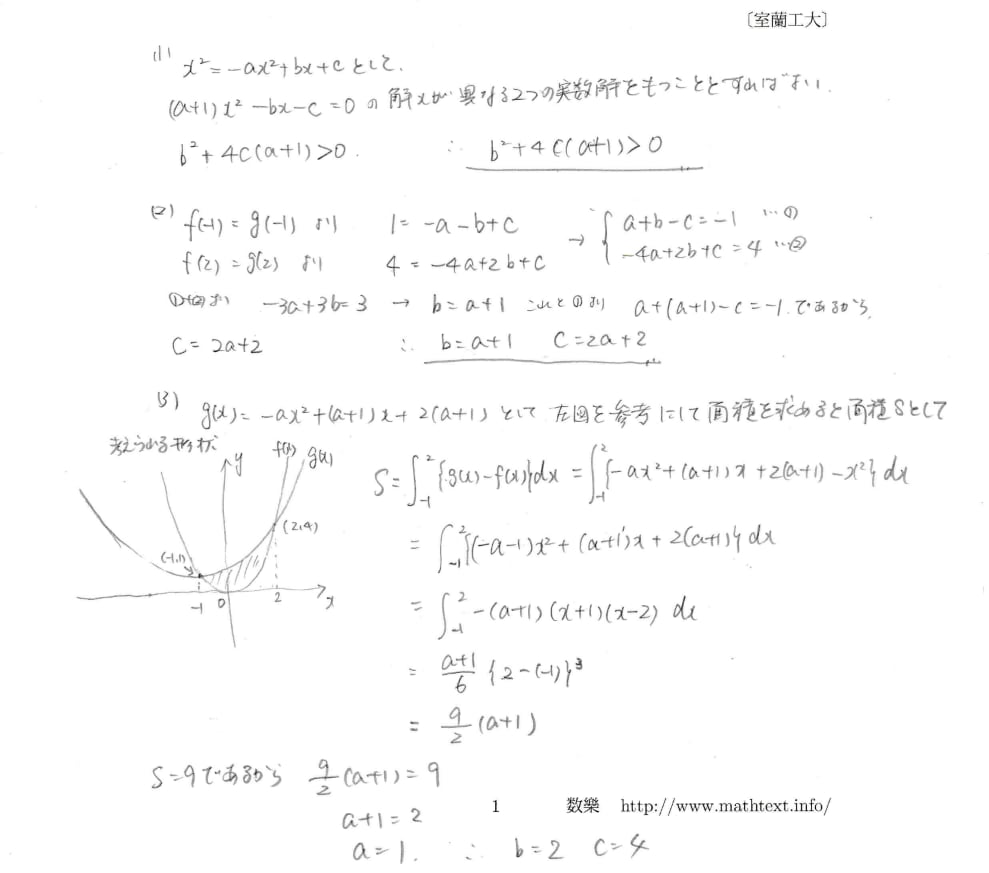 〔室蘭工大〕
(1) x²=-ax²+bx+c として.
(a+1)x²-bx-c=0 の解xが異なる2つの実数解をもつこととすればよい.
b²+4c(a+1)>0. ∴ b²+4c(a+1)>0
(2) f(-1)=g(-1) より 1=-a-b+c → { a+b-c=-1 …①
f(2)=g(2) より 4=-4a+2b+c -4a+2b+c=4 …②
①+②より -3a+3b=3 → b=a+1 これと①より a+(a+1)-c=-1. であるから.
c=2a+2 ∴ b=a+1 c=2a+2
(3) g(x)=-ax²+(a+1)x+2(a+1) として 左図を参考にして面積を求めると面積Sとして
考えられる形状
y f(x) g(x)
(2,4)
(-1,1)
-1 0 2 x
S=∫₋₁²{g(x)-f(x)}dx=∫₋₁²{-ax²+(a+1)x+2(a+1)-x²}dx
=∫₋₁²{(-a-1)x²+(a+1)x+2(a+1)}dx
=∫₋₁²-(a+1)(x+1)(x-2) dx
= a+1/6 {2-(-1)}³
= 9/2 (a+1)
S=9であるから 9/2 (a+1)=9
a+1=2
a=1. ∴ b=2 c=4
1 数樂 http://www.mathtext.info/